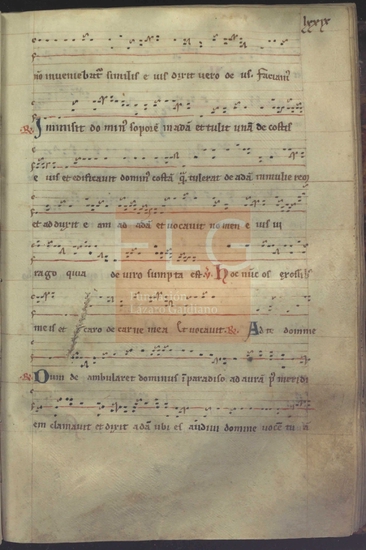 lxxix
no inveniebat᷑ similis e ius dixit vero de us. faciam᷒
℟ Inmisit do min᷒ soporē in adā et tulit unā de costis
e ius et edificavit domin᷒ costā q̄ tulerat de adā in mulie rēq᷒
et ad duxit e am ad adā et vocavit no men e ius vi
rago quia de viro sumpta est ℣ Hoc nūc os ex ossib᷒
FLG
meis et caro de carne mea Et vocavit. ℟ Ad te domine
Fundación
Lázaro Galdiano
℟ Dum de ambularet dominus ī paradiso ad aurā p᷒ meridi
em clamavit et dixit adā ubi es audivi domine vocē tu ā